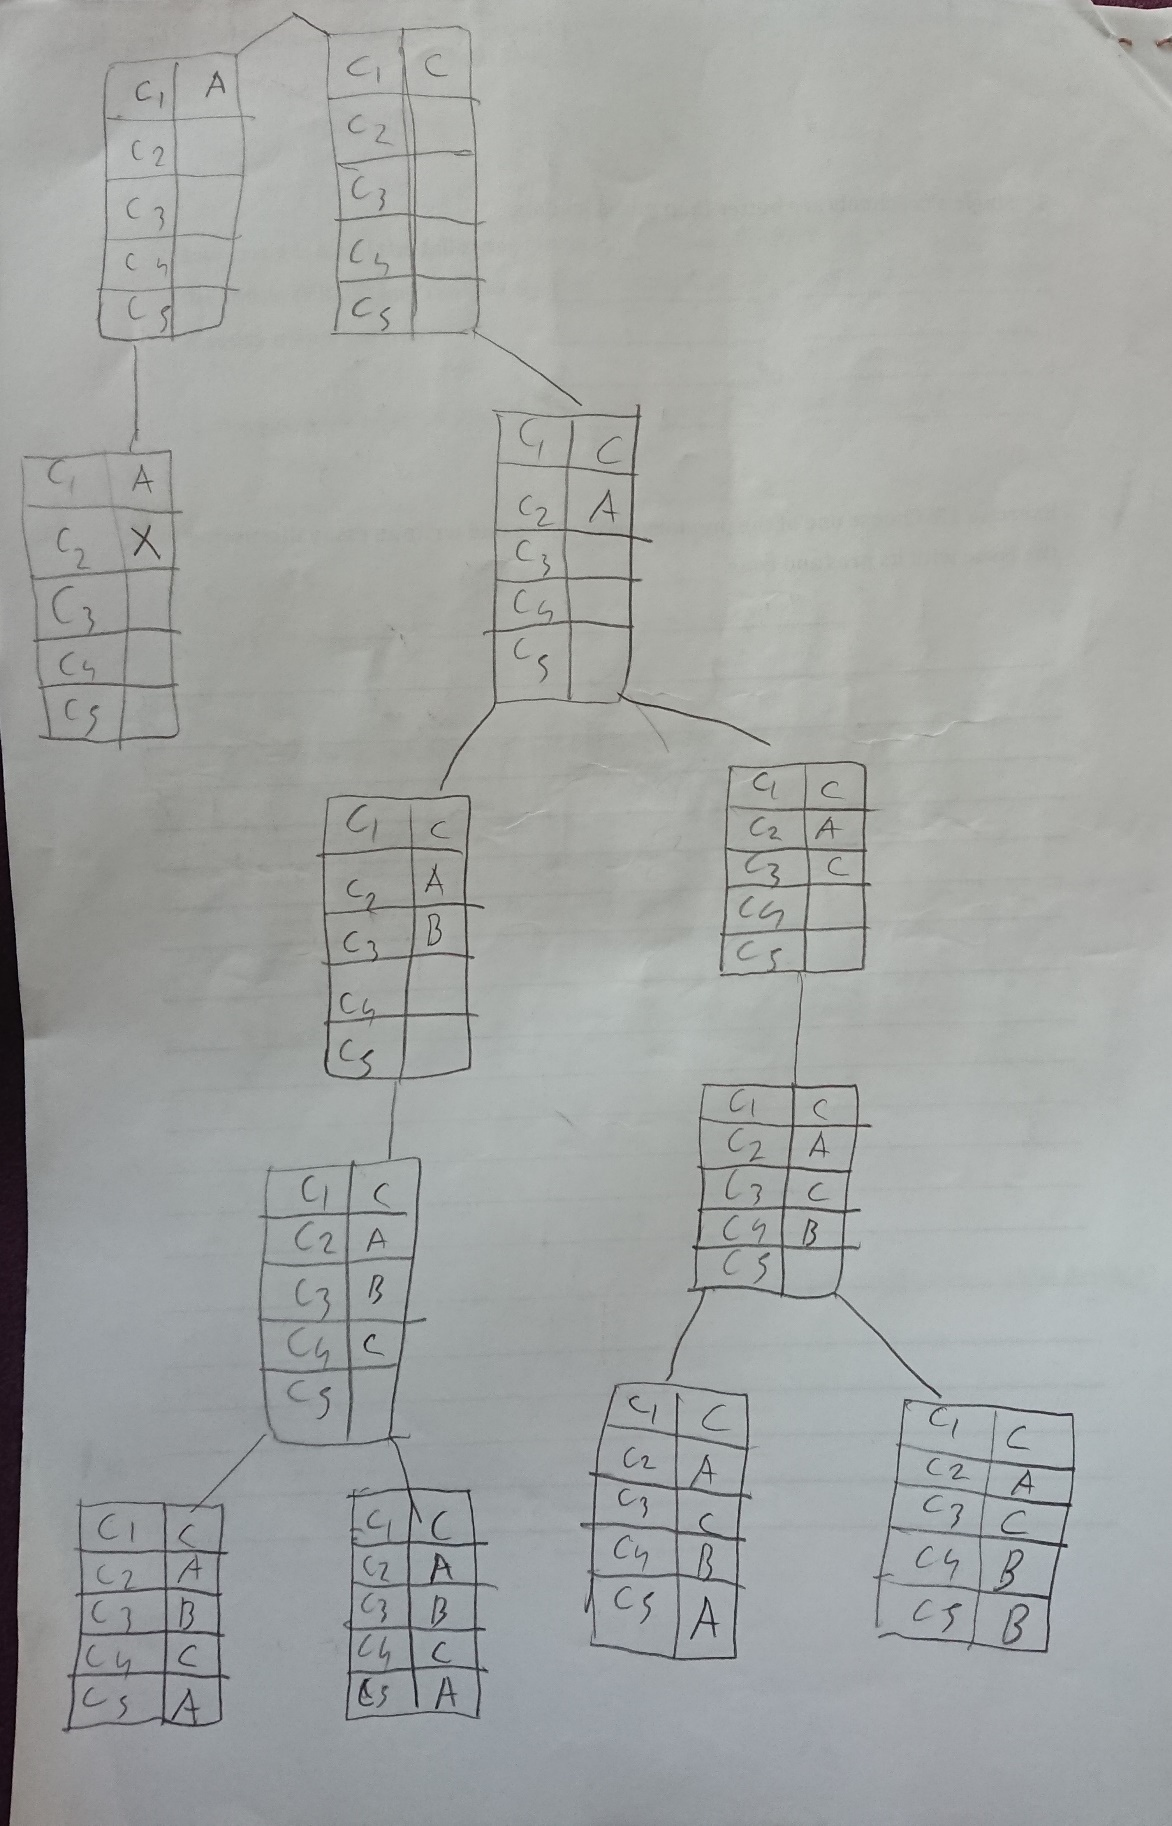 C1 A
C2
C3
C4
C5
C1 C
C2
C3
C4
C5
C1 A
C2 X
C3
C4
C5
C1 C
C2 A
C3
C4
C5
C1 C
C2 A
C3 B
C4
C5
C1 C
C2 A
C3 C
C4
C5
C1 C
C2 A
C3 B
C4 C
C5
C1 C
C2 A
C3 C
C4 B
C5
C1 C
C2 A
C3 B
C4 C
C5 A
C1 C
C2 A
C3 B
C4 C
C5 A
C1 C
C2 A
C3 C
C4 B
C5 A
C1 C
C2 A
C3 C
C4 B
C5 B